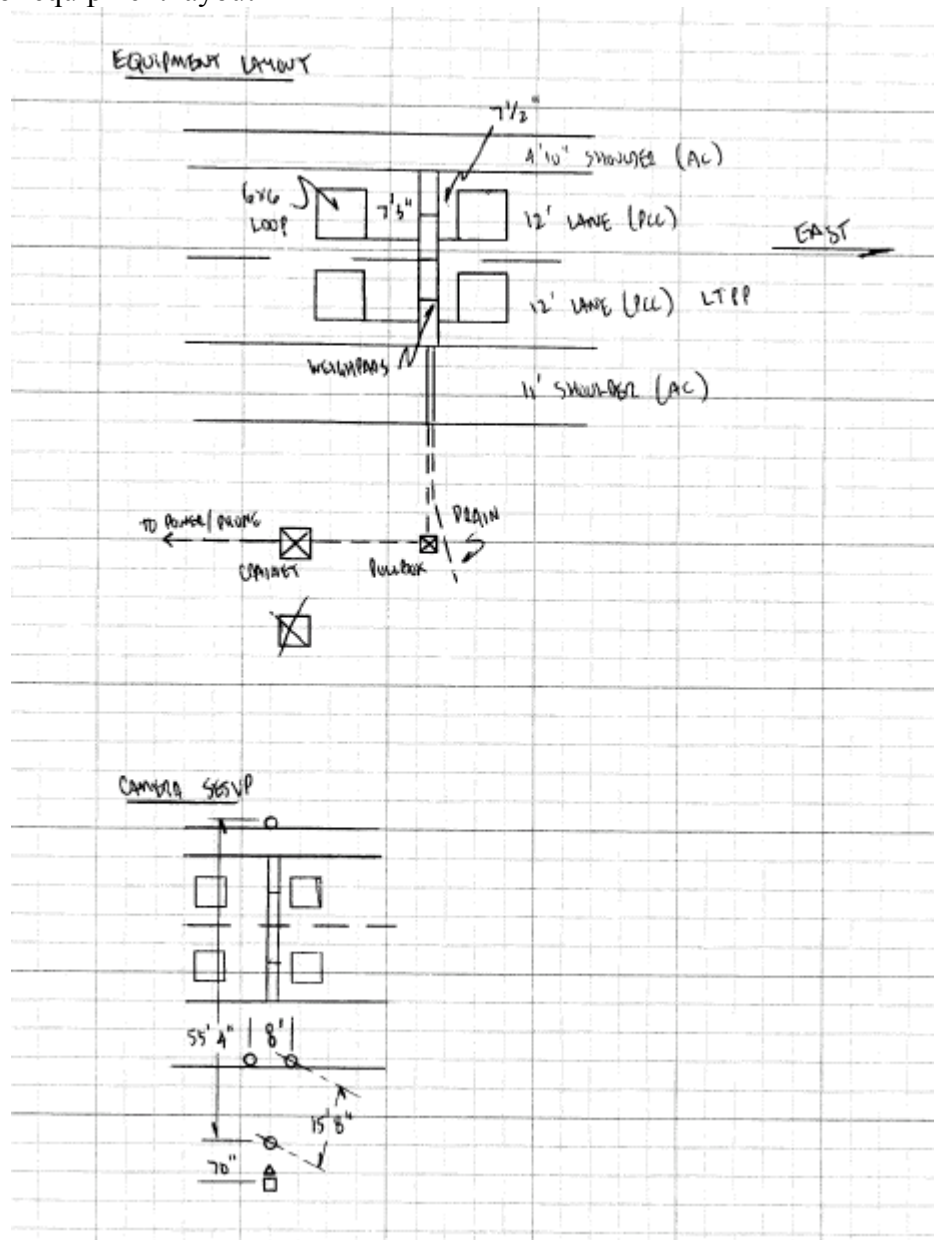 equipment layout
EQUIPMENT LAYOUT
7 1/2"
4'10" SHOULDER (AC)
6x6
LOOP
7'5"
12' LANE (PCC)
EAST
12' LANE (PCC) LTPP
WEIGHPADS
11' SHOULDER (AC)
TO POWER/PHONE
DRAIN
CABINET
PULLBOX
CAMERA SETUP
55' 4"
8'
15' 8"
70"